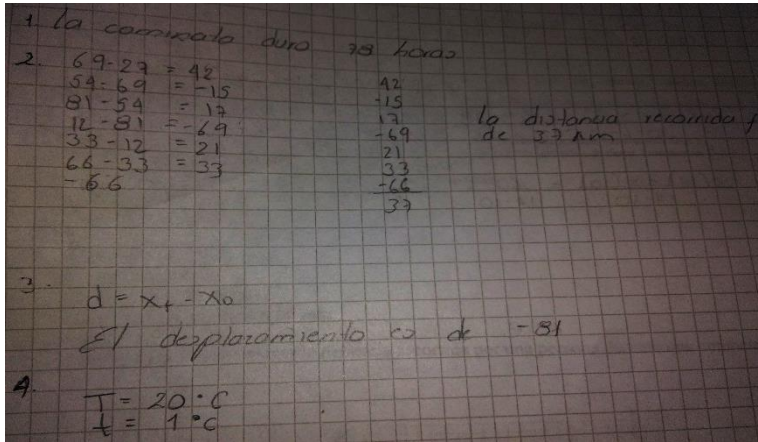 1 la caminata duro 78 horas
2. 69-27 = 42
54-69 = -15
81-54 = 17
12-81 = -69
33-12 = 21
66-33 = 33
-66
42
-15
17
-69
21
33
-66
37
la distancia recorrida f
de 37 km
3.
d = x_f - x_0
El desplazamiento es de -81
4.
T = 20 °C
t = 1 °C